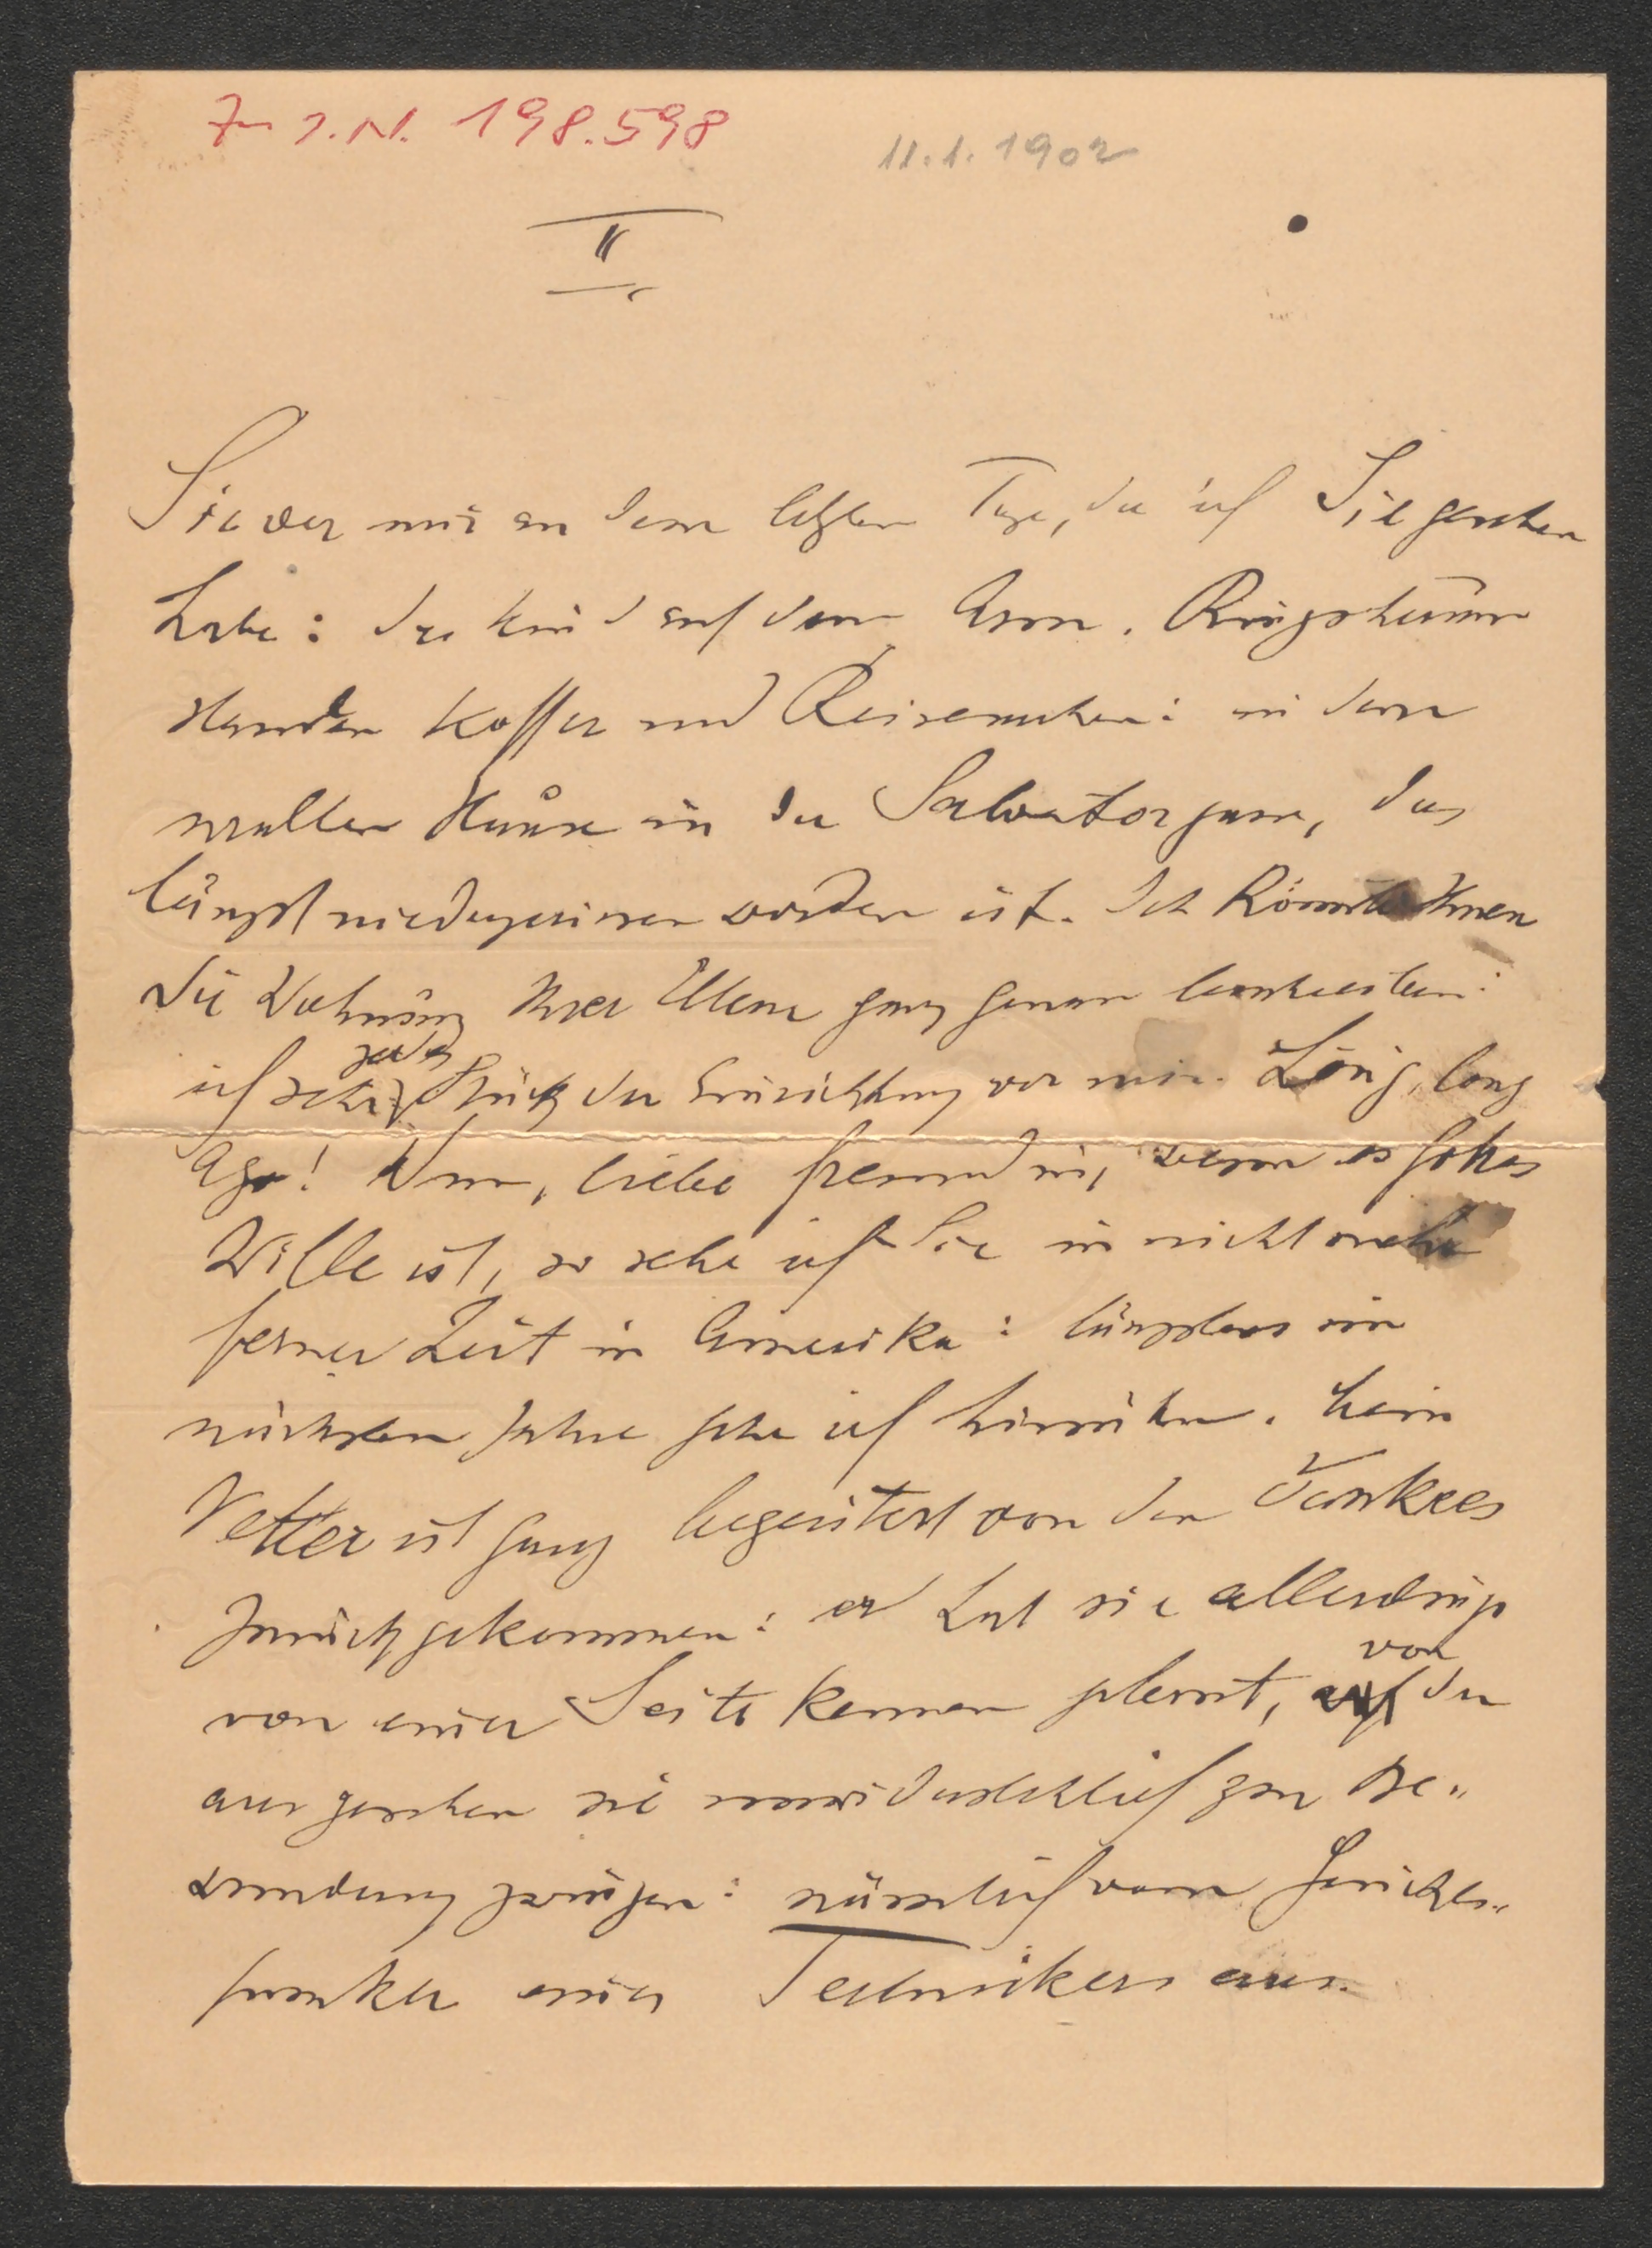 Zu I.N. 198.598
11.1.1902
II
Sie vor mir an dem letzten Tage, da ich Sie gesehen
habe: das Kind auf dem Arm. Ringsherum
standen Koffer und Reisesachen: in dem
uralten Hause in der Salvatorgasse, das
längst niedergerissen worden ist. Ich könnte Ihnen
die Wohnung Ihrer Eltern ganz genau beschreiben:
ich sehe jedes Stück der Einrichtung vor mir. Long, long
ago! Nun, liebe Freundin, wenn es Gottes
Wille ist, so sehe ich Sie in nicht mehr
ferner Zeit in Amerika: längstens im
nächsten Jahre gehe ich hinüber. Mein
Vetter ist ganz begeistert von den Yankees
zurückgekommen: er hat sie allerdings
von einer Seite kennen gelernt, von der
aus gesehen sie unwiderstehlich zur Be-
wunderung zwingen: nämlich vom Gesichts-
punkte eines Technikers aus.